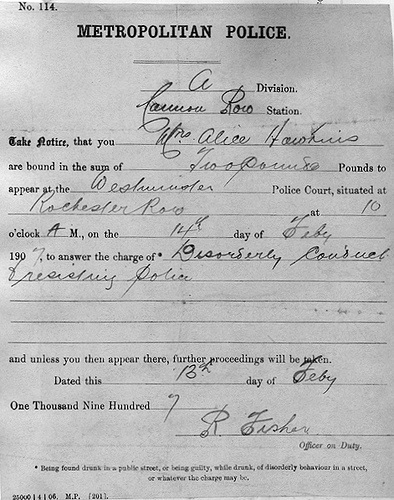 No. 114.
METROPOLITAN POLICE.
A Division.
Cannon Row Station.
Take Notice, that you Mrs Alice Hawkins
are bound in the sum of Two pounds Pounds to
appear at the Westminster Police Court, situated at
Rochester Row at 10
o'clock A M., on the 14th day of Feby
1907, to answer the charge of * Disorderly Conduct
& resisting Police
and unless you then appear there, further proceedings will be taken.
Dated this 13th day of Feby
One Thousand Nine Hundred 7
R. Fisher
Officer on Duty.
* Being found drunk in a public street, or being guilty, while drunk, of disorderly behaviour in a street,
or whatever the charge may be.
25000 | 4 | 06 M.P. (201).